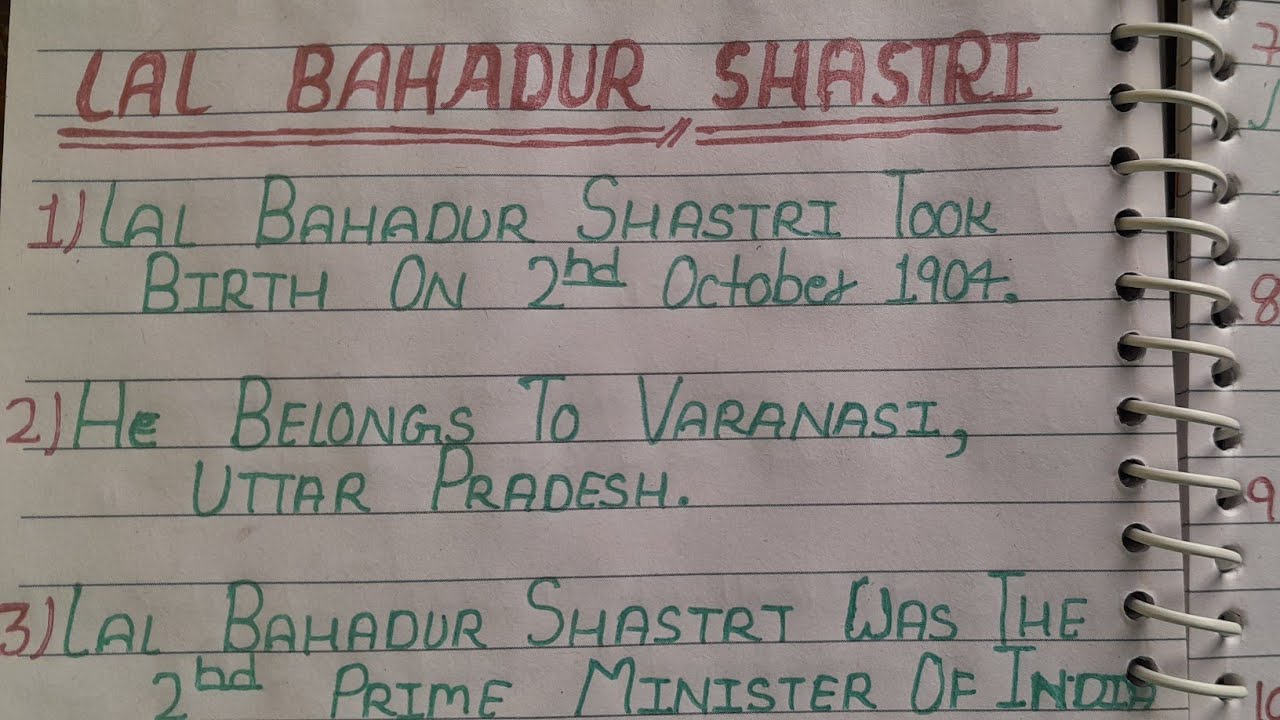 LAL BAHADUR SHASTRI
1) LAL BAHADUR SHASTRI TOOK
BIRTH ON 2nd October 1904.
2) He BELONGS TO VARANASI,
UTTAR PRADESH.
3) LAL BAHADUR SHASTRI WAS THE
2nd PRIME MINISTER OF INDIA
7
8
9
10